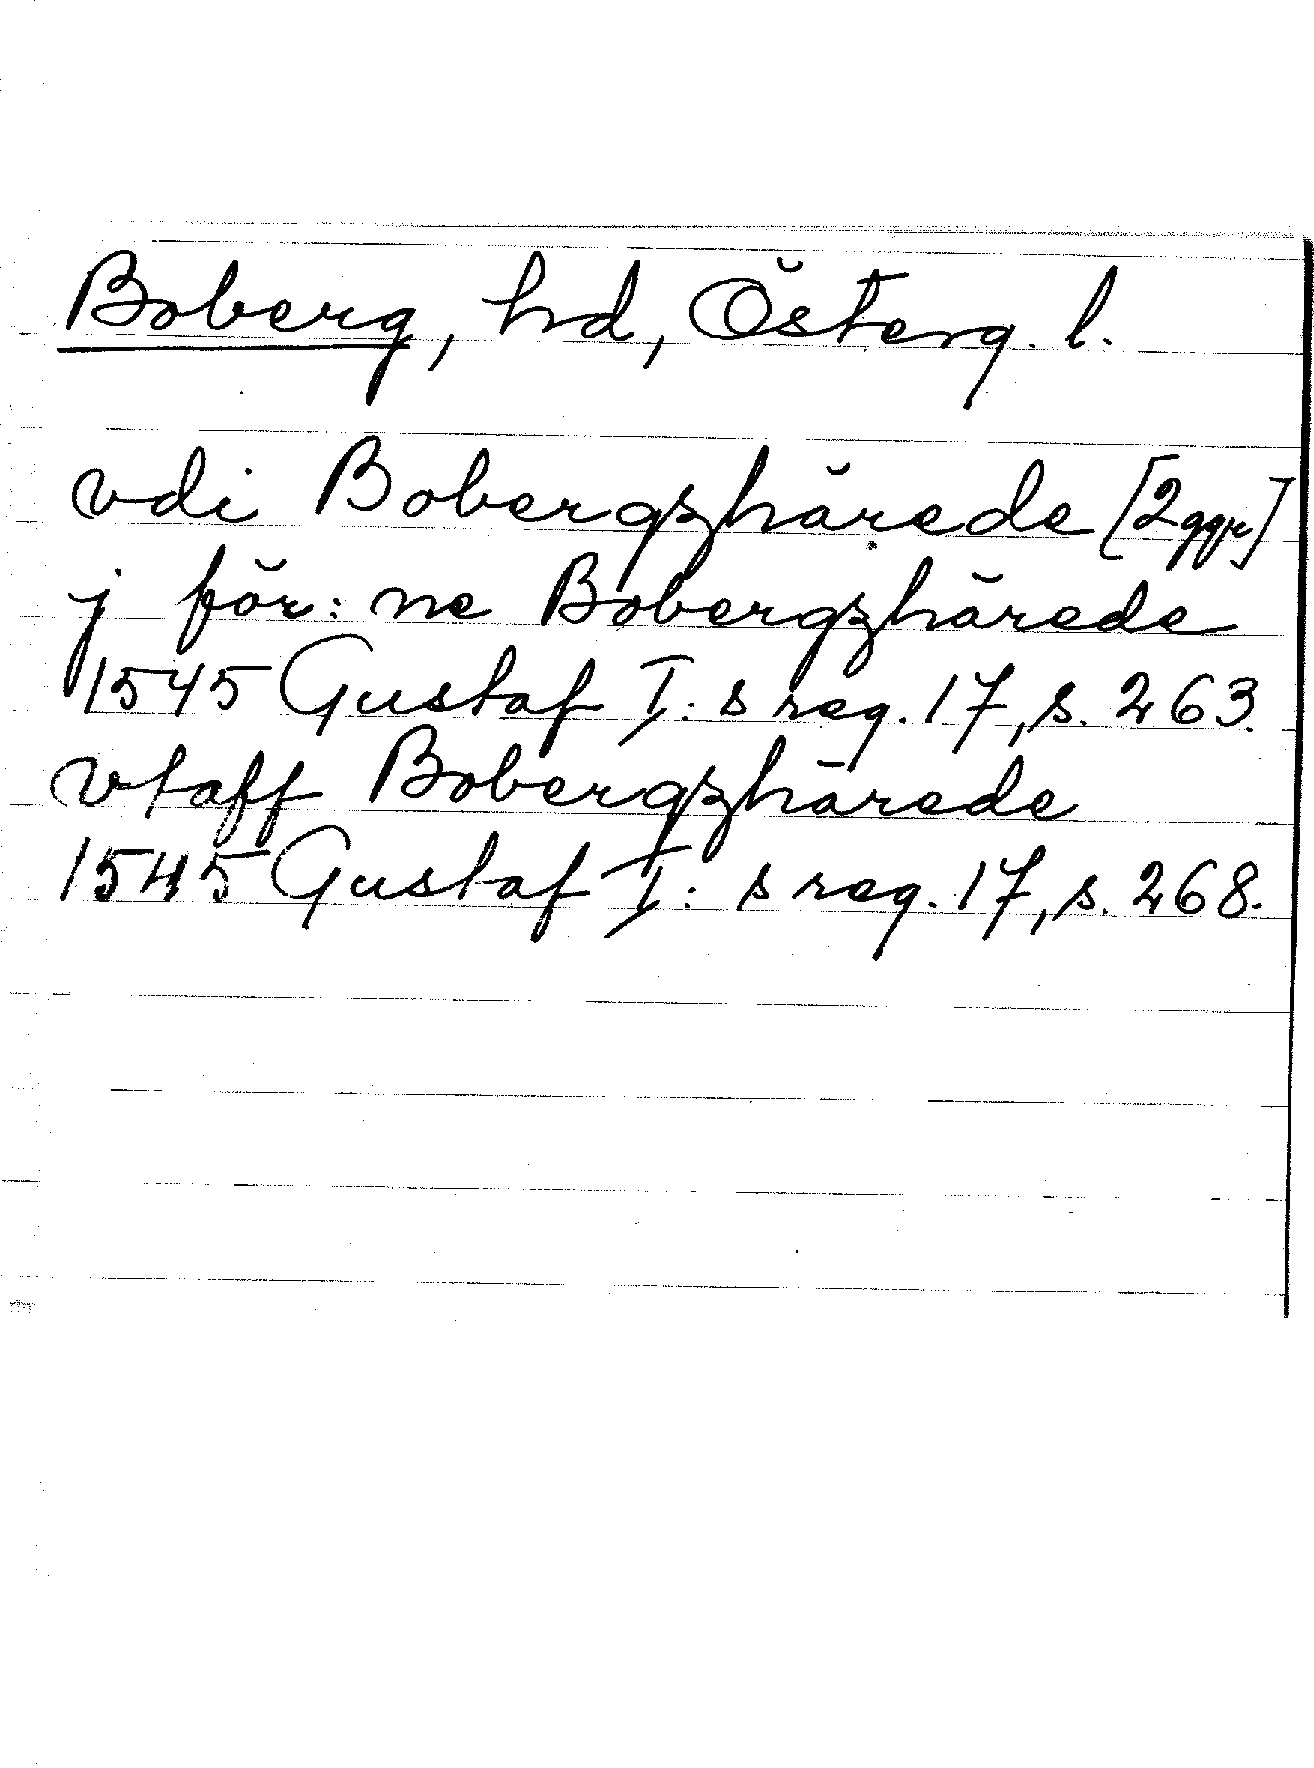 Boberg, hd, Österg. l.
vdi Bobergzhärede [2 ggr]
j för:ne Bobergzhärede
1545 Gustaf I:s reg. 17, s. 263.
vtaff Bobergzhärede
1545 Gustaf I:s reg. 17, s. 268.